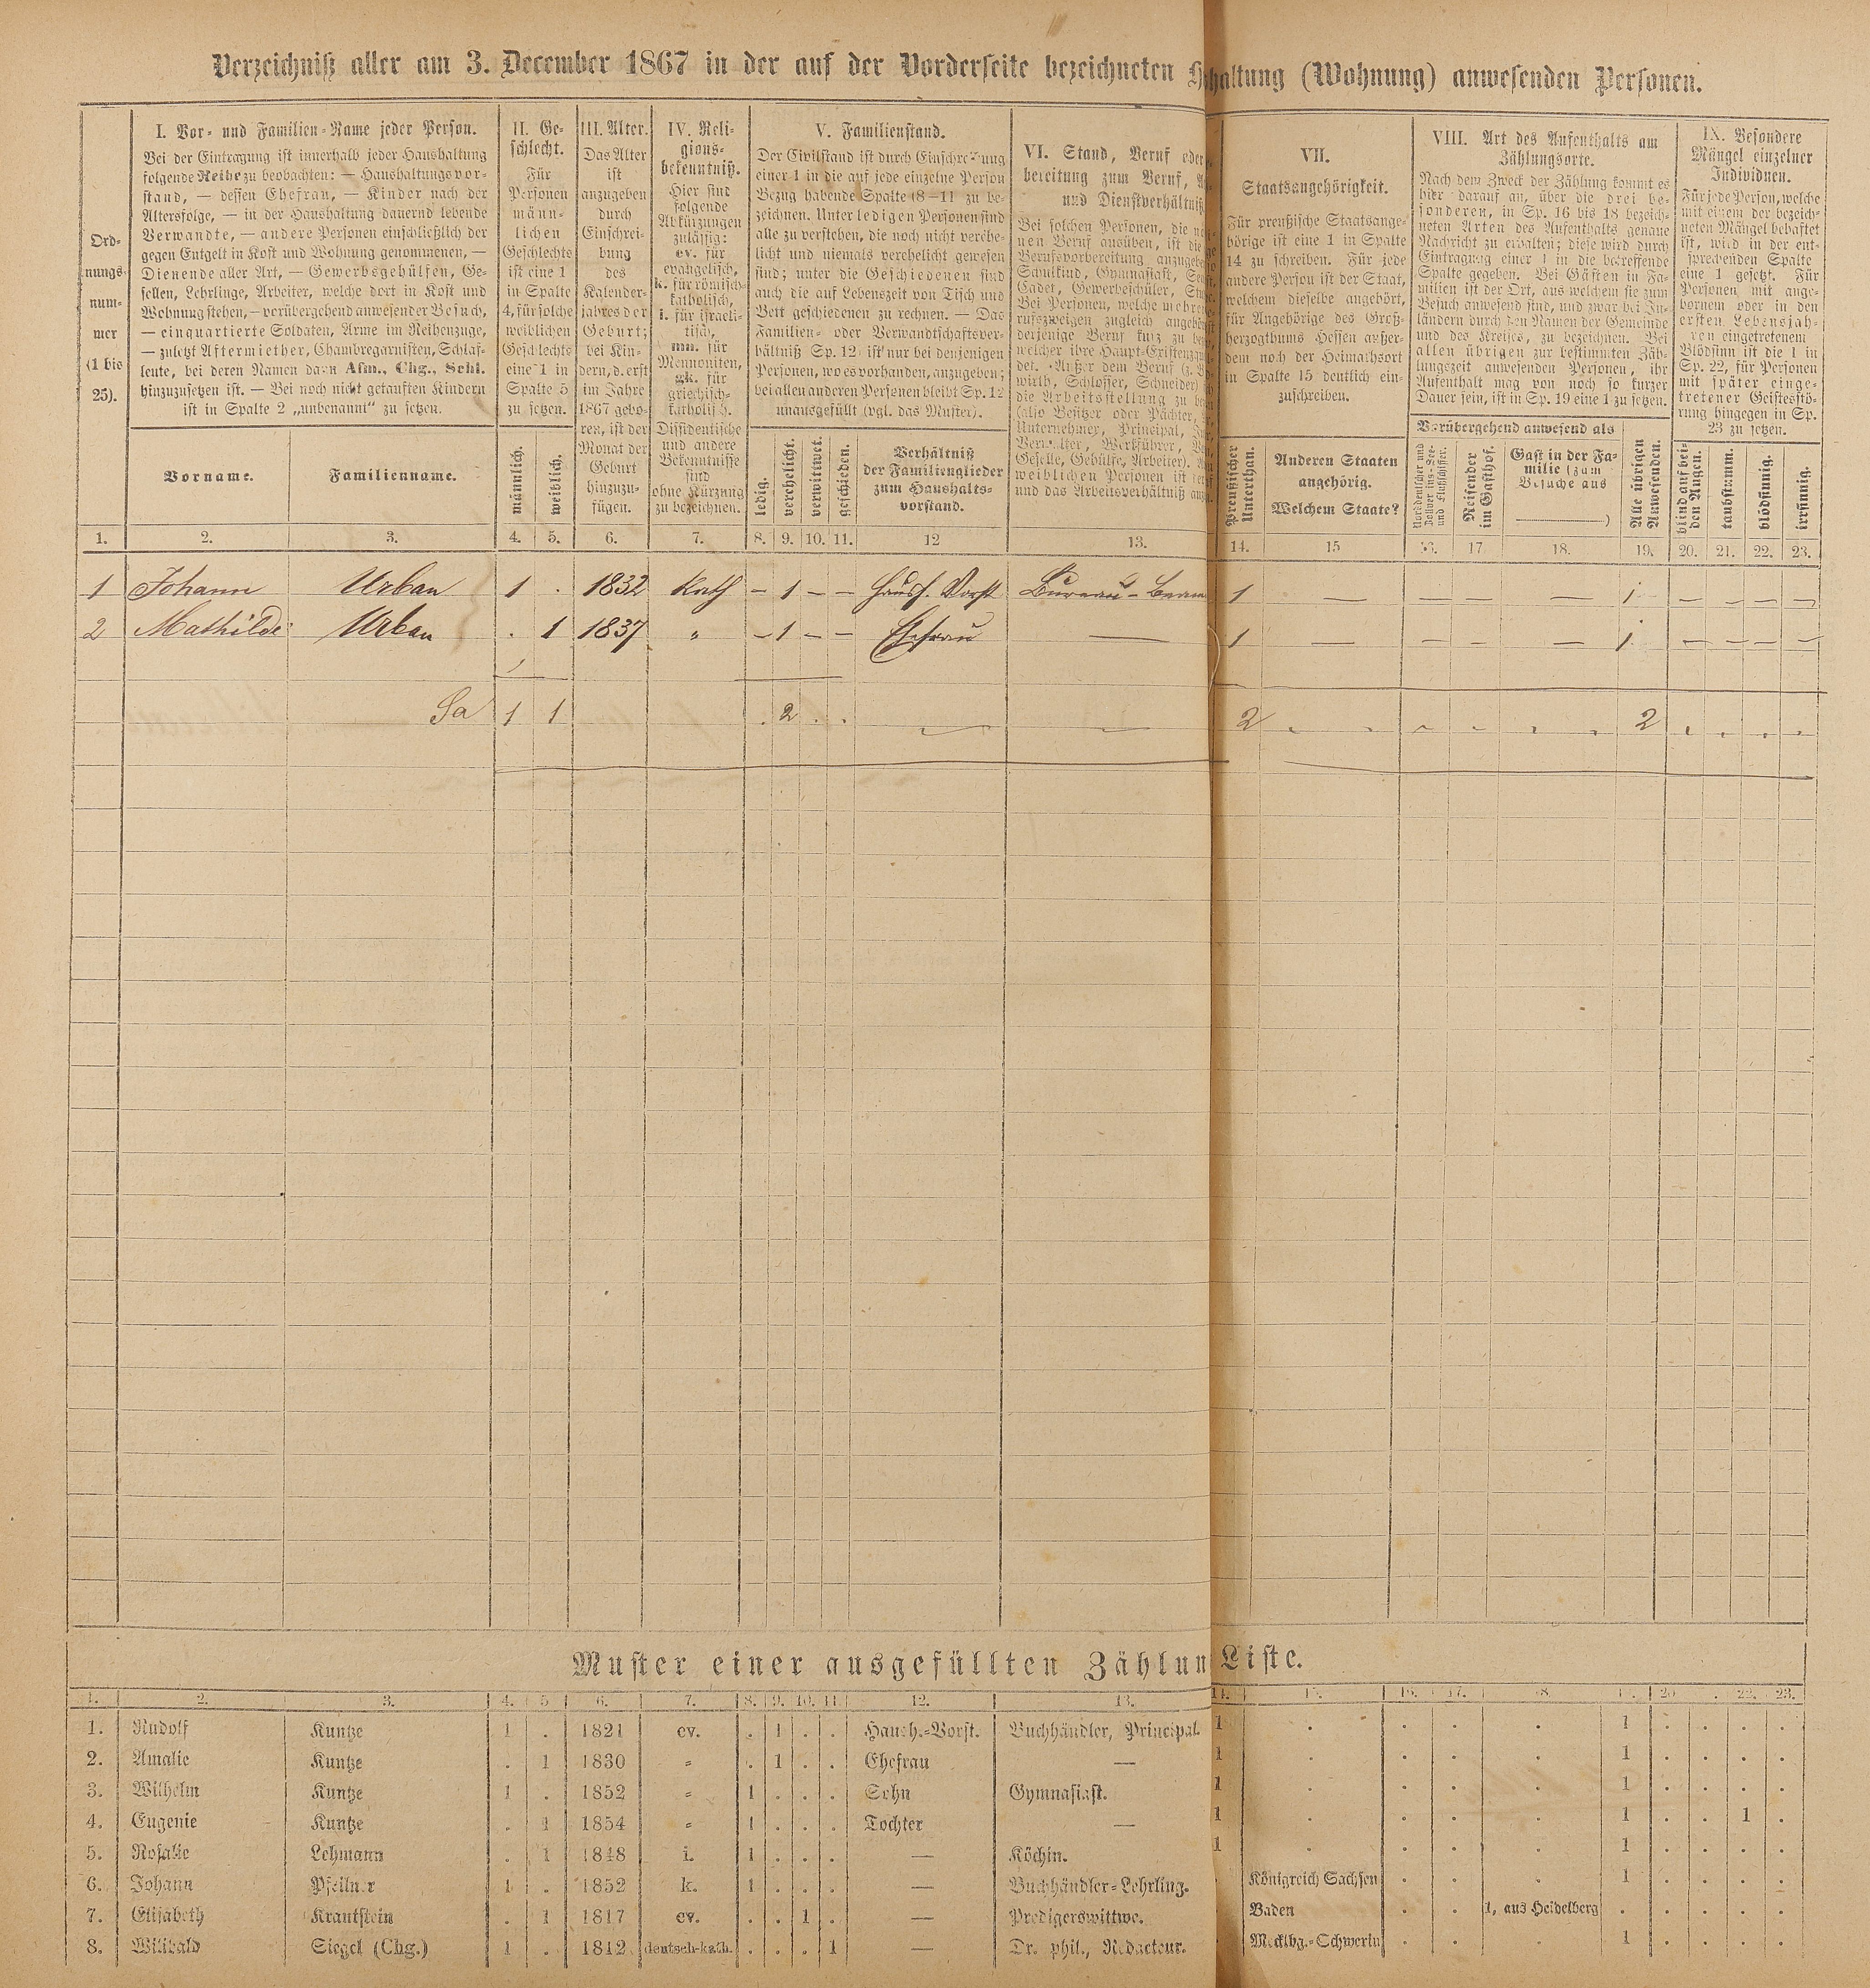 Verzeichniß aller am 3. December 1867 in der auf der Vorderseite bezeichneten haltung (Wohnung) anwesenden Personen.
Ord-
nungs-
num-
mer
(1 bis
25).
I. Vor- und Familien-Name jeder Person.
Bei der Eintragung ist innerhalb jeder Haushaltung
folgende Reihe zu beobachten: — Haushaltungsvor-
stand, — dessen Ehefrau, — Kinder nach der
Altersfolge, — in der Haushaltung dauernd lebende
Verwandte, — andere Personen einschließlich der
gegen Entgelt in Kost und Wohnung genommenen, —
Dienende aller Art, — Gewerbsgehülfen, Ge-
sellen, Lehrlinge, Arbeiter, welche dort in Kost und
Wohnung stehen, — vorübergehend anwesender Besuch,
— einquartierte Soldaten, Arme im Reihenzuge,
— zuletzt Aftermiether, Chambregarnisten, Schlaf-
leute, bei deren Namen dann Afm., Chg., Schl.
hinzuzusetzen ist. — Bei noch nicht getauften Kindern
ist in Spalte 2 „unbenannt“ zu setzen.
Vorname.
Familienname.
II. Ge-
schlecht.
Für
Personen
männ-
lichen
Geschlechts
ist eine 1
in Spalte
4, für solche
weiblichen
Geschlechts
eine 1 in
Spalte 5
zu setzen.
männlich.
weiblich.
III. Alter.
Das Alter
ist
anzugeben
durch
Einschrei-
bung
des
Kalender-
jahres der
Geburt;
bei Kin-
dern, d. erst
im Jahre
1867 gebo-
ren, ist der
Monat der
Geburt
hinzuzu-
fügen.
IV. Reli-
gions-
bekenntniß.
Hier sind
folgende
Abkürzungen
zulässig:
ev. für
evangelisch,
k. für römisch-
katholisch,
i. für israeli-
tisch,
mn. für
Mennoniten,
gk. für
griechisch-
katholisch.
Dissidentische
und andere
Bekenntnisse
sind
ohne Kürzung
zu bezeichnen.
V. Familienstand.
Der Civilstand ist durch Einschreibung
einer 1 in die auf jede einzelne Person
Bezug habende Spalte (8—11) zu be-
zeichnen. Unter ledigen Personen sind
alle zu verstehen, die noch nicht verehe-
licht und niemals verehelicht gewesen
sind; unter die Geschiedenen sind
auch die auf Lebenszeit von Tisch und
Bett geschiedenen zu rechnen. — Das
Familien- oder Verwandtschaftsver-
hältniß Sp. 12 ist nur bei denjenigen
Personen, wo es vorhanden, anzugeben;
bei allen anderen Personen bleibt Sp. 12
unausgefüllt (vgl. das Muster).
ledig.
verehelicht.
verwittwet.
geschieden.
Verhältniß
der Familienglieder
zum Haushalts-
vorstand.
VI. Stand, Beruf oder
bereitung zum Beruf,
und Dienstverhältniß
Bei solchen Personen, die
nen Beruf ausüben, ist die
Berufsvorbereitung anzugeben
Schulkind, Gymnasiast,
Cadet, Gewerbeschüler,
Bei Personen, welche mehreren
rufszweigen zugleich angehören
derjenige Beruf kurz zu
welcher ihre Haupt-Existenz
det. Außer dem Beruf
wirth, Schlosser, Schneider)
die Arbeitsstellung zu
(also Besitzer oder Pächter,
Unternehmer, Principal,
Verwalter, Werkführer,
Geselle, Gehülfe, Arbeiter).
weiblichen Personen ist
und das Arbeitsverhältniß
VII.
Staatsangehörigkeit.
Für preußische Staatsange-
hörige ist eine 1 in Spalte
14 zu schreiben. Für jede
andere Person ist der Staat,
welchem dieselbe angehört,
für Angehörige des Groß-
herzogthums Hessen außer-
dem noch der Heimathsort
in Spalte 15 deutlich ein-
zuschreiben.
Preußischer
Unterthan.
Anderen Staaten
angehörig.
Welchem Staate?
VIII. Art des Aufenthalts am
Zählungsorte.
Nach dem Zweck der Zählung kommt es
hier darauf an, über die drei be-
sonderen, in Sp. 16 bis 18 bezeich-
neten Arten des Aufenthalts genaue
Nachricht zu erhalten; diese wird durch
Eintragung einer 1 in die betreffende
Spalte gegeben. Bei Gästen in Fa-
milien ist der Ort, aus welchem sie zum
Besuch anwesend sind, und zwar bei In-
ländern durch den Namen der Gemeinde
und des Kreises, zu bezeichnen. Bei
allen übrigen zur bestimmten Zäh-
lungszeit anwesenden Personen, ihr
Aufenthalt mag von noch so kurzer
Dauer sein, ist in Sp. 19 eine 1 zu setzen.
Vorübergehend anwesend als
Norddeutscher und
Zollvereins-See-
und Flußschiffer.
Reisender
im Gasthof.
Gast in der Fa-
milie (zum
Besuche aus
)
Alle übrigen
Anwesenden.
IX. Besondere
Mängel einzelner
Individuen.
Für jede Person, welche
mit einem der bezeich-
neten Mängel behaftet
ist, wird in der ent-
sprechenden Spalte
eine 1 gesetzt. Für
Personen mit ange-
bornem oder in den
ersten Lebensjah-
ren eingetretenem
Blödsinn ist die 1 in
Sp. 22, für Personen
mit später einge-
tretener Geistesstö-
rung hingegen in Sp.
23 zu setzen.
blind auf bei-
den Augen.
taubstumm.
blödsinnig.
irrsinnig.
1. 2. 3. 4. 5. 6. 7. 8. 9. 10. 11. 12 13. 14. 15 16. 17 18. 19. 20. 21. 22. 23.
1 Johann Urban 1 . 1832 Kath — 1 — — Haush. Vorst Bureau-Beam 1 — — — — 1 — — — —
2 Mathilde Urban . 1 1837 „ — 1 — — Ehefrau — 1 — — — — 1 — — — —
Sa 1 1 . 2 . . 2 2
Muster einer ausgefüllten Zählun Liste.
1. 2. 3. 4. 5 6. 7. 8. 9. 10. 11 12. 13. 14. 15. 16. 17. 18. 20 22. 23.
1. Rudolf Kuntze 1 . 1821 ev. . 1 . . Haush.-Vorst. Buchhändler, Principal. 1 . . . . 1 . . . .
2. Amalie Kuntze . 1 1830 „ . 1 . . Ehefrau — 1 . . . . 1 . . . .
3. Wilhelm Kuntze 1 . 1852 „ 1 . . . Sohn Gymnasiast. 1 . . . . 1 . . . .
4. Eugenie Kuntze . 1 1854 „ 1 . . . Tochter — 1 . . . . 1 . . 1 .
5. Rosalie Lehmann . 1 1848 i. 1 . . . — Köchin. 1 . . . . 1 . . . .
6. Johann Pfeilner 1 . 1852 k. 1 . . . — Buchhändler-Lehrling. Königreich Sachsen . . . 1 . . . .
7. Elisabeth Krautstein . 1 1817 ev. . . 1 . — Predigerswittwe. Baden . . 1, aus Heidelberg . . . . .
8. Willibald Siegel (Chg.) 1 . 1812 deutsch-kath. . . . 1 — Dr. phil., Redacteur. Mecklbg.-Schwerin . . . 1 . . . .